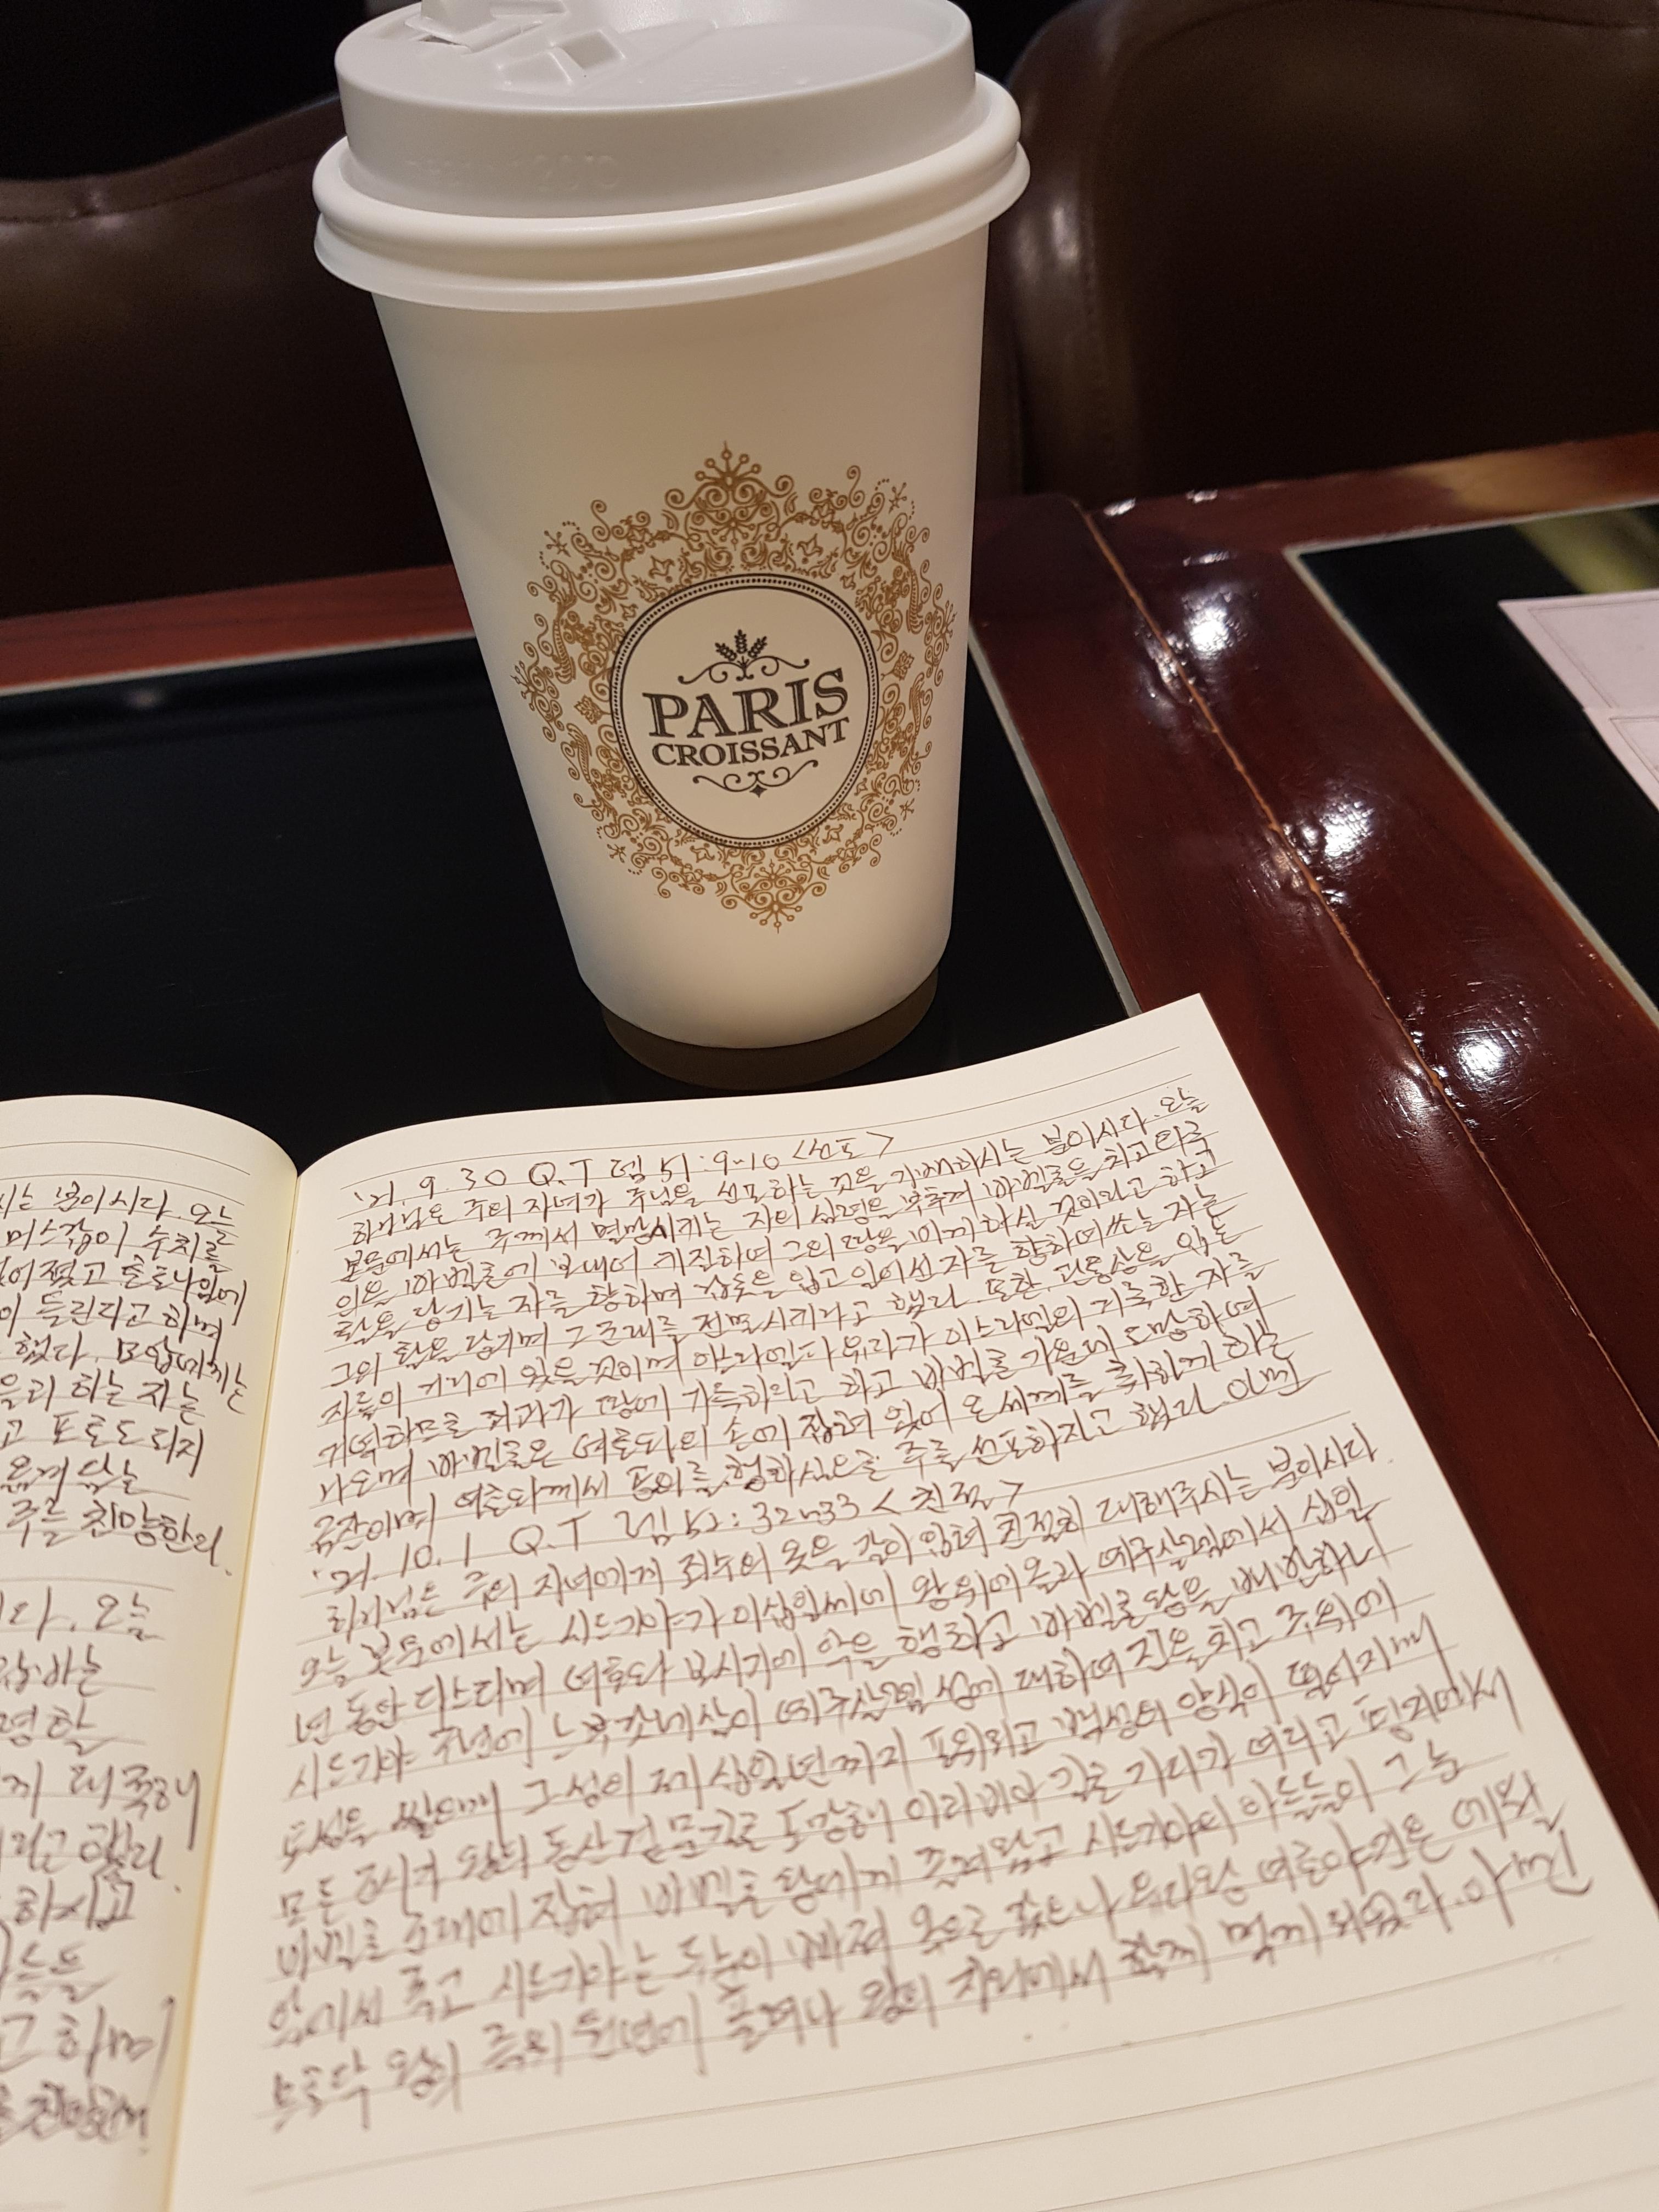 PARIS
CROISSANT
시는 분이시다. 오늘
수치를
들린다고 하며
했다. 모압에게는
하는 자는
고 포로도 되지
주를 찬양한다.
오늘
'21. 9. 30 Q.T 렘 51:9-10 <선포>
하나님은 주의 자녀가 주님을 선포하는 것을 기뻐하시는 분이시다. 오늘
본문에서는 주께서 멸망시키는 자의 심령을 부추겨 바벨론을 치고 타국
인을 바벨론에 보내어 키질하여 그의 땅을 비게 하실 것이라고 하고
활을 당기는 자를 향하며 갑옷을 입고 일어선 자를 향하여 쏘는 자는
그의 활을 당기며 그 군대를 전멸시키라고 했다. 또한, 관통상을 입은
자들이 거리에 있을 것이며 이스라엘과 유다가 이스라엘의 거룩한 자를
거역하므로 죄과가 땅에 가득하다고 하고 바벨론 가운데 도망하여
나오며 바벨론은 여호와의 손에 잡혀 있어 온 세계를 취하게 하는
금잔이며 여호와께서 공의를 행하심으로 주를 선포하자고 했다. 아멘
'21. 10. 1 Q.T 렘 52:32-33 <친절>
하나님은 주의 자녀에게 죄수의 옷을 갈아 입혀 친절히 대해주시는 분이시다.
오늘 본문에서는 시드기야가 이십일세에 왕위에 올라 예루살렘에서 십일
년 동안 다스리며 여호와 보시기에 악을 행하고 바벨론 왕을 배반하니
시드기야 구년에 느부갓네살이 예루살렘 성에 대하여 진을 치고 주위에
토성을 쌓으매 그 성이 제 십일년까지 포위되고 백성의 양식이 떨어지매
모든 군사가 왕의 동산 곁문 길로 도망해 아라바 길로 가다가 여리고 평지에서
바벨론 군대에 잡혀 바벨론 왕에게 끌려왔고 시드기야의 아들들이 그 눈
앞에서 죽고 시드기야는 두 눈이 빠져 옥으로 갔으나 유다왕 여호야긴은 에윌
므로닥 왕의 즉위 원년에 풀려나 왕의 치외에서 함께 먹게 되었다. 아멘